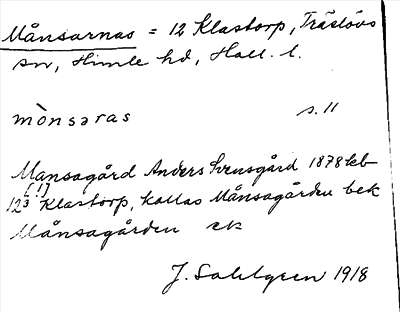 Månsarnas = 12 Klastorp, Träslövs
sn, Himle hd, Hall. l.
mònsaras s. 11
Mansagård Anders Svensgård 1878 kb
[!]
12³ Klastorp, kallas Månsagården bek
Månsagården ek
J. Sahlgren 1918